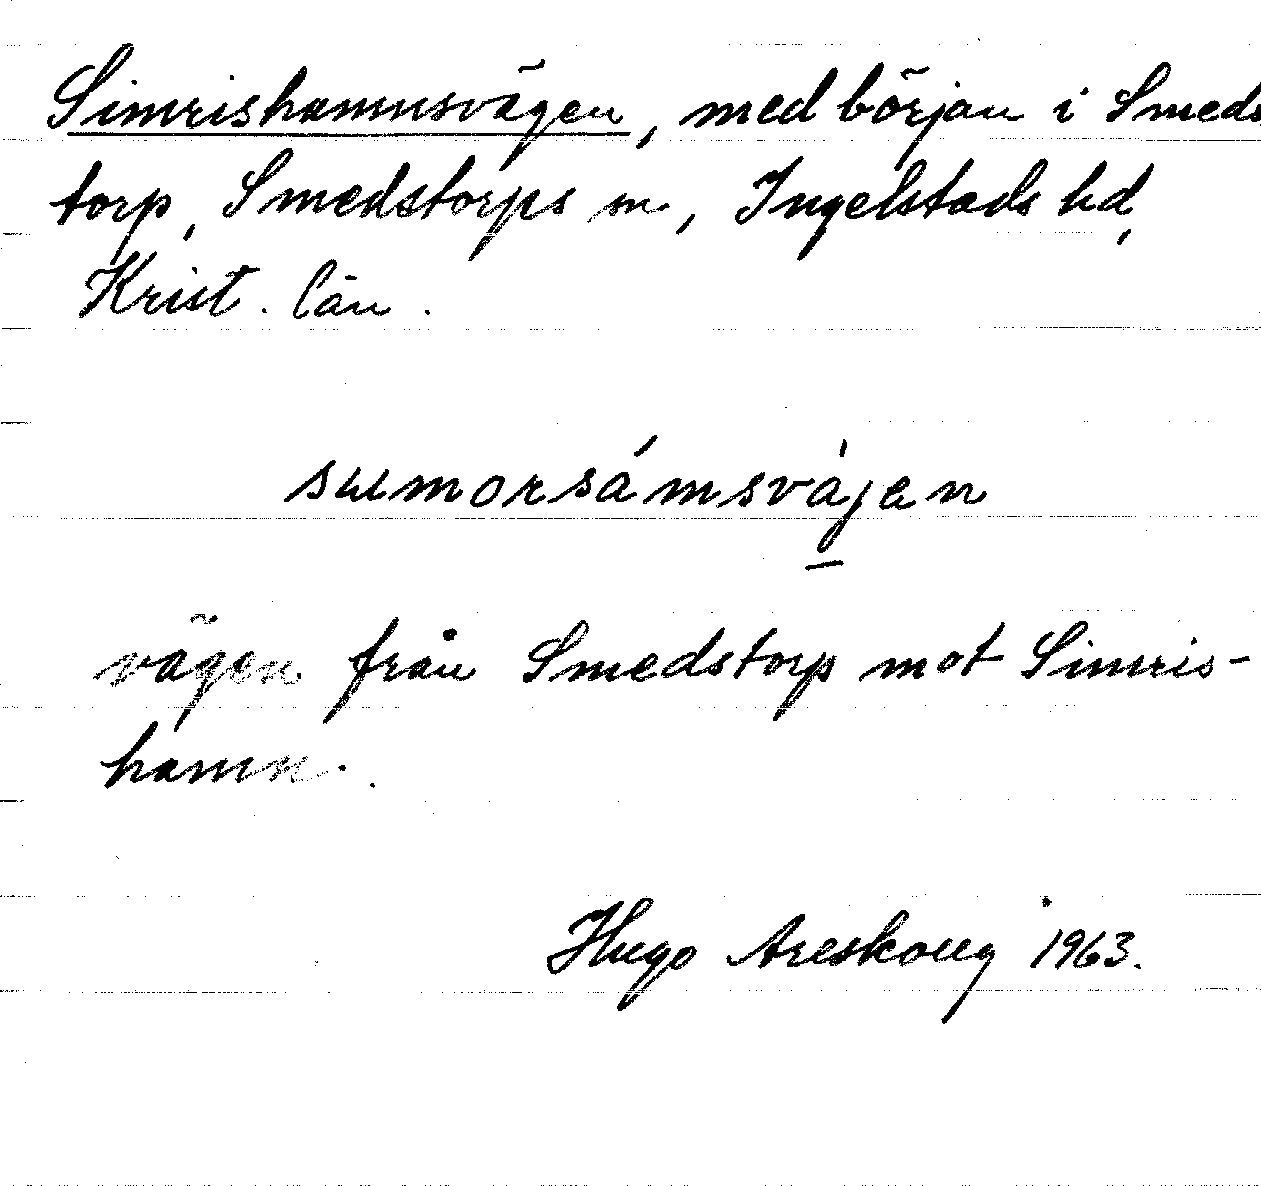 Simrishamnsvägen, med början i Smeds
torp, Smedstorps sn, Ingelstads hd,
Krist. län.
sɯmorsámsvàjen
vägen från Smedstorp mot Simris-
hamn.
Hugo Areskoug 1963.